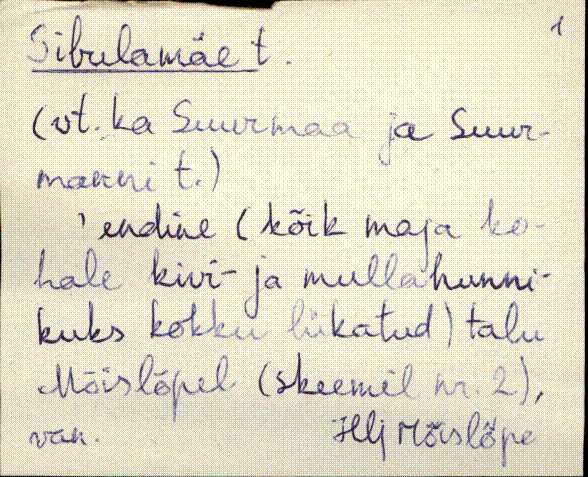 1
Sibulamäe t.
(vt. ka Suurmaa ja Suur-
manni t.)
' endine (kõik maja ko-
hale kivi- ja mullahunni-
kuks kokku lükatud) talu
Mõislõpel (skeemil nr. 2),
van. Hlj Mõislõpe